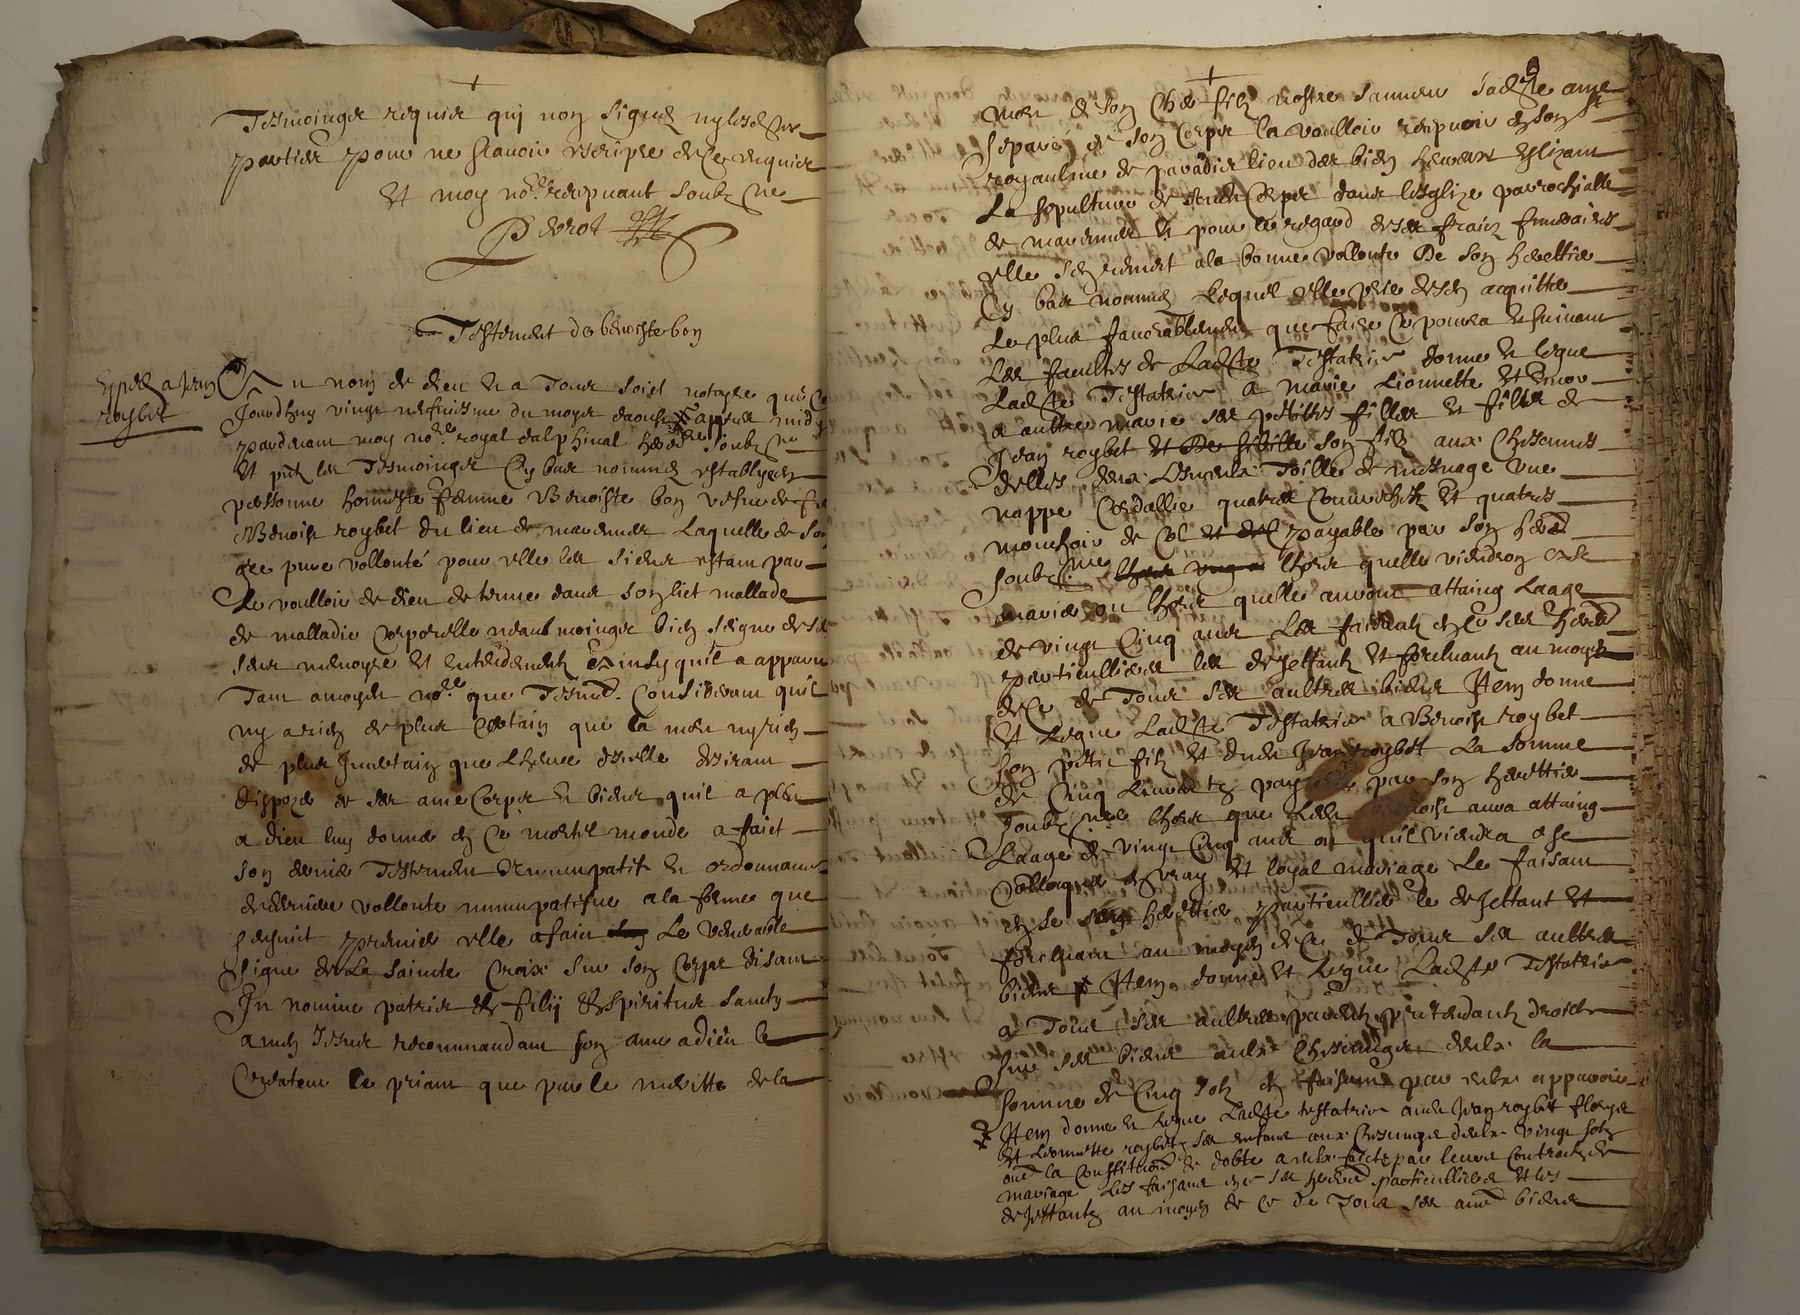 Tesmoingz requier quj non signez ny lesd
parties pour ne sçavoir escripre de ce enquier
Et moy no.re recepuant soubz ne
Perrot
Testement de benoiste bon
Expedie a Jean
roybet
Au nom de dieu et a tous soict notoyre que
Jourdhuy vingt neufiesme du moys daoust appres midy
pardevant moy no.re royal dalphinal hered.re soubz ne
et pnt les Tesmoingz cy bas nommez establye en
personne honneste femme Benoiste bon vefve de feu
Benoist roybet du lieu de marennes laquelle de son
gre pure vollonté pour elle les siens estant par
le voulloir de dieu detenue dans son liet mallade
de malladie corporelle neaulmoingz bien seigne de ses
sens memoyre et entendement ainsy quil a apparu
Tant a moydt no.re que Tesmd. Considerant quil
ny a rien de plus certain que la mort ny rien
de plus Jncertain que lheure dicelle desirant
dispozer de ses ame corps et biens quil a pleu
a dieu luy donner en ce mortel monde a faict
son dernier Testement et nuncupatif et ordonnance
de derniere vollonte nuncupatifve a la forme que
sensuict premier elle a faict le venerable
signe de la saincte Croix sur son corps disant
Jn nomine patris et filij et spiritus sancty
amen Jesus recommandant son ame a dieu le
Createur le priant que par le meritte de la
mort de son cher filz nostre sauveur sad.te ame
separée de son corps la voulloir recepvoir en son st
royaulme de paradis lieu des bien heureux eslizant
La sepulture de sond corps dans lesglize parrochialle
de marennes et pour le regard de ses fraiz funeraires
elle sen remet a la bonne vollonte de son herettier
cy bas nommez lequel elle prie de sen acquitter
le plus favorablement que faire ce pourra et suivant
les facultes de Lad.te Testatrix donne et legue
Lad.te Testatrix a marie Lionnette et encor
a aultre marie ses petittes filles et filles de
Jean roybet son filz aux chescunes
delles deux linceulx toille de mesnage une
nappe cordallie quatre couvrechefz et quatres
mouchoir de col payable par son herd
soubz.ne lhors quelle viendron a se
marier ou lhors quelle auront attaing Laage
de vingt cinq ans Les faisant en ce ses herd
particullieres les dejettant et forcluant au moyen
de ce de Tous ses aultres biens Jtem donne
et legue Lad.te Testatrix a Benoist roybet
son petit filz et dud Jean roybet La somme
de Cinq livres tz par son herettier
soubz.ne lhors que led benoist aura attaing
Laage de vingt Cinq ans ou quil viendra a se
colloquer en vray et loyal mariage Le faisant
en ce herettier particullier le dejettant et
forcluant au moyen de ce de Tous ses aultres
biens Jtem donne et legue Lad.te Testatrix
a Tous ses aultres parentz pretendantz droict
sur ses biens aulx chescungz deulx la
somme de Cinq solz en faisant par eulx apparoir
Jtem donne et legue Lad.te testatrix aud Jean roybet
et Lionnette roybet ses enfans aux chescungz deulx vingt solz
oud la constitution de dobte a eulx faicte par leurs contractz de
mariage les faisant en ce ses herd particulliers et les
dejettant au moyen de ce de Tous ses aud biens